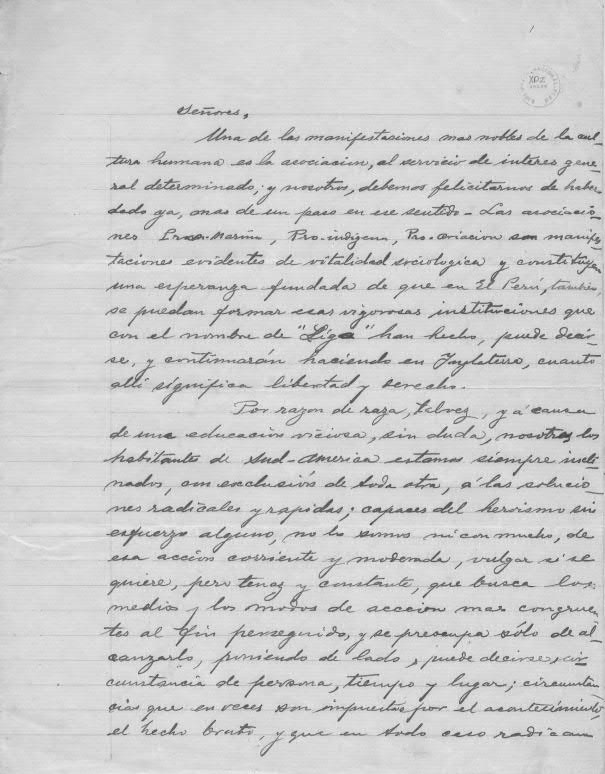 1
Señores,
Una de las manifestaciones mas nobles de la cul-
tura humana es la asociacion, al servicio de interes gene-
ral determinado; y nosotros, debemos felicitarnos de haber
dado ya, mas de un paso en ese sentido - Las asociacio-
nes Pro-Marina, Pro-indigena, Pro-aviacion son manifes-
taciones evidentes de vitalidad sociologica y constituyen
una esperanza fundada de que en El Perú, tambien,
se puedan formar esas vigorosas instituciones que
con el nombre de "Liga" han hecho, puede decir-
se, y continuarán haciendo en Inglaterra, cuanto
allí significa libertad y derecho.
Por razon de raza, talvez, y á causa
de una educación viciosa, sin duda, nosotros los
habitantes de Sud-America estamos siempre incli-
nados, con exclusión de toda otra, á las solucio-
nes radicales y rapidas; capaces del heroismo sin
esfuerzo alguno, no lo somos ni con mucho, de
esa acción corriente y moderada, vulgar si se
quiere, pero tenaz y constante, que busca los
medios y los modos de accion mas congruen-
tes al fin perseguido, y se preocupa sólo de al-
canzarlo, poniendo de lado, puede decirse, cir-
cunstancia de persona, tiempo y lugar; circunstan-
cias que en veces son impuestas por el acontecimiento,
el hecho bruto, y que en todo caso radican